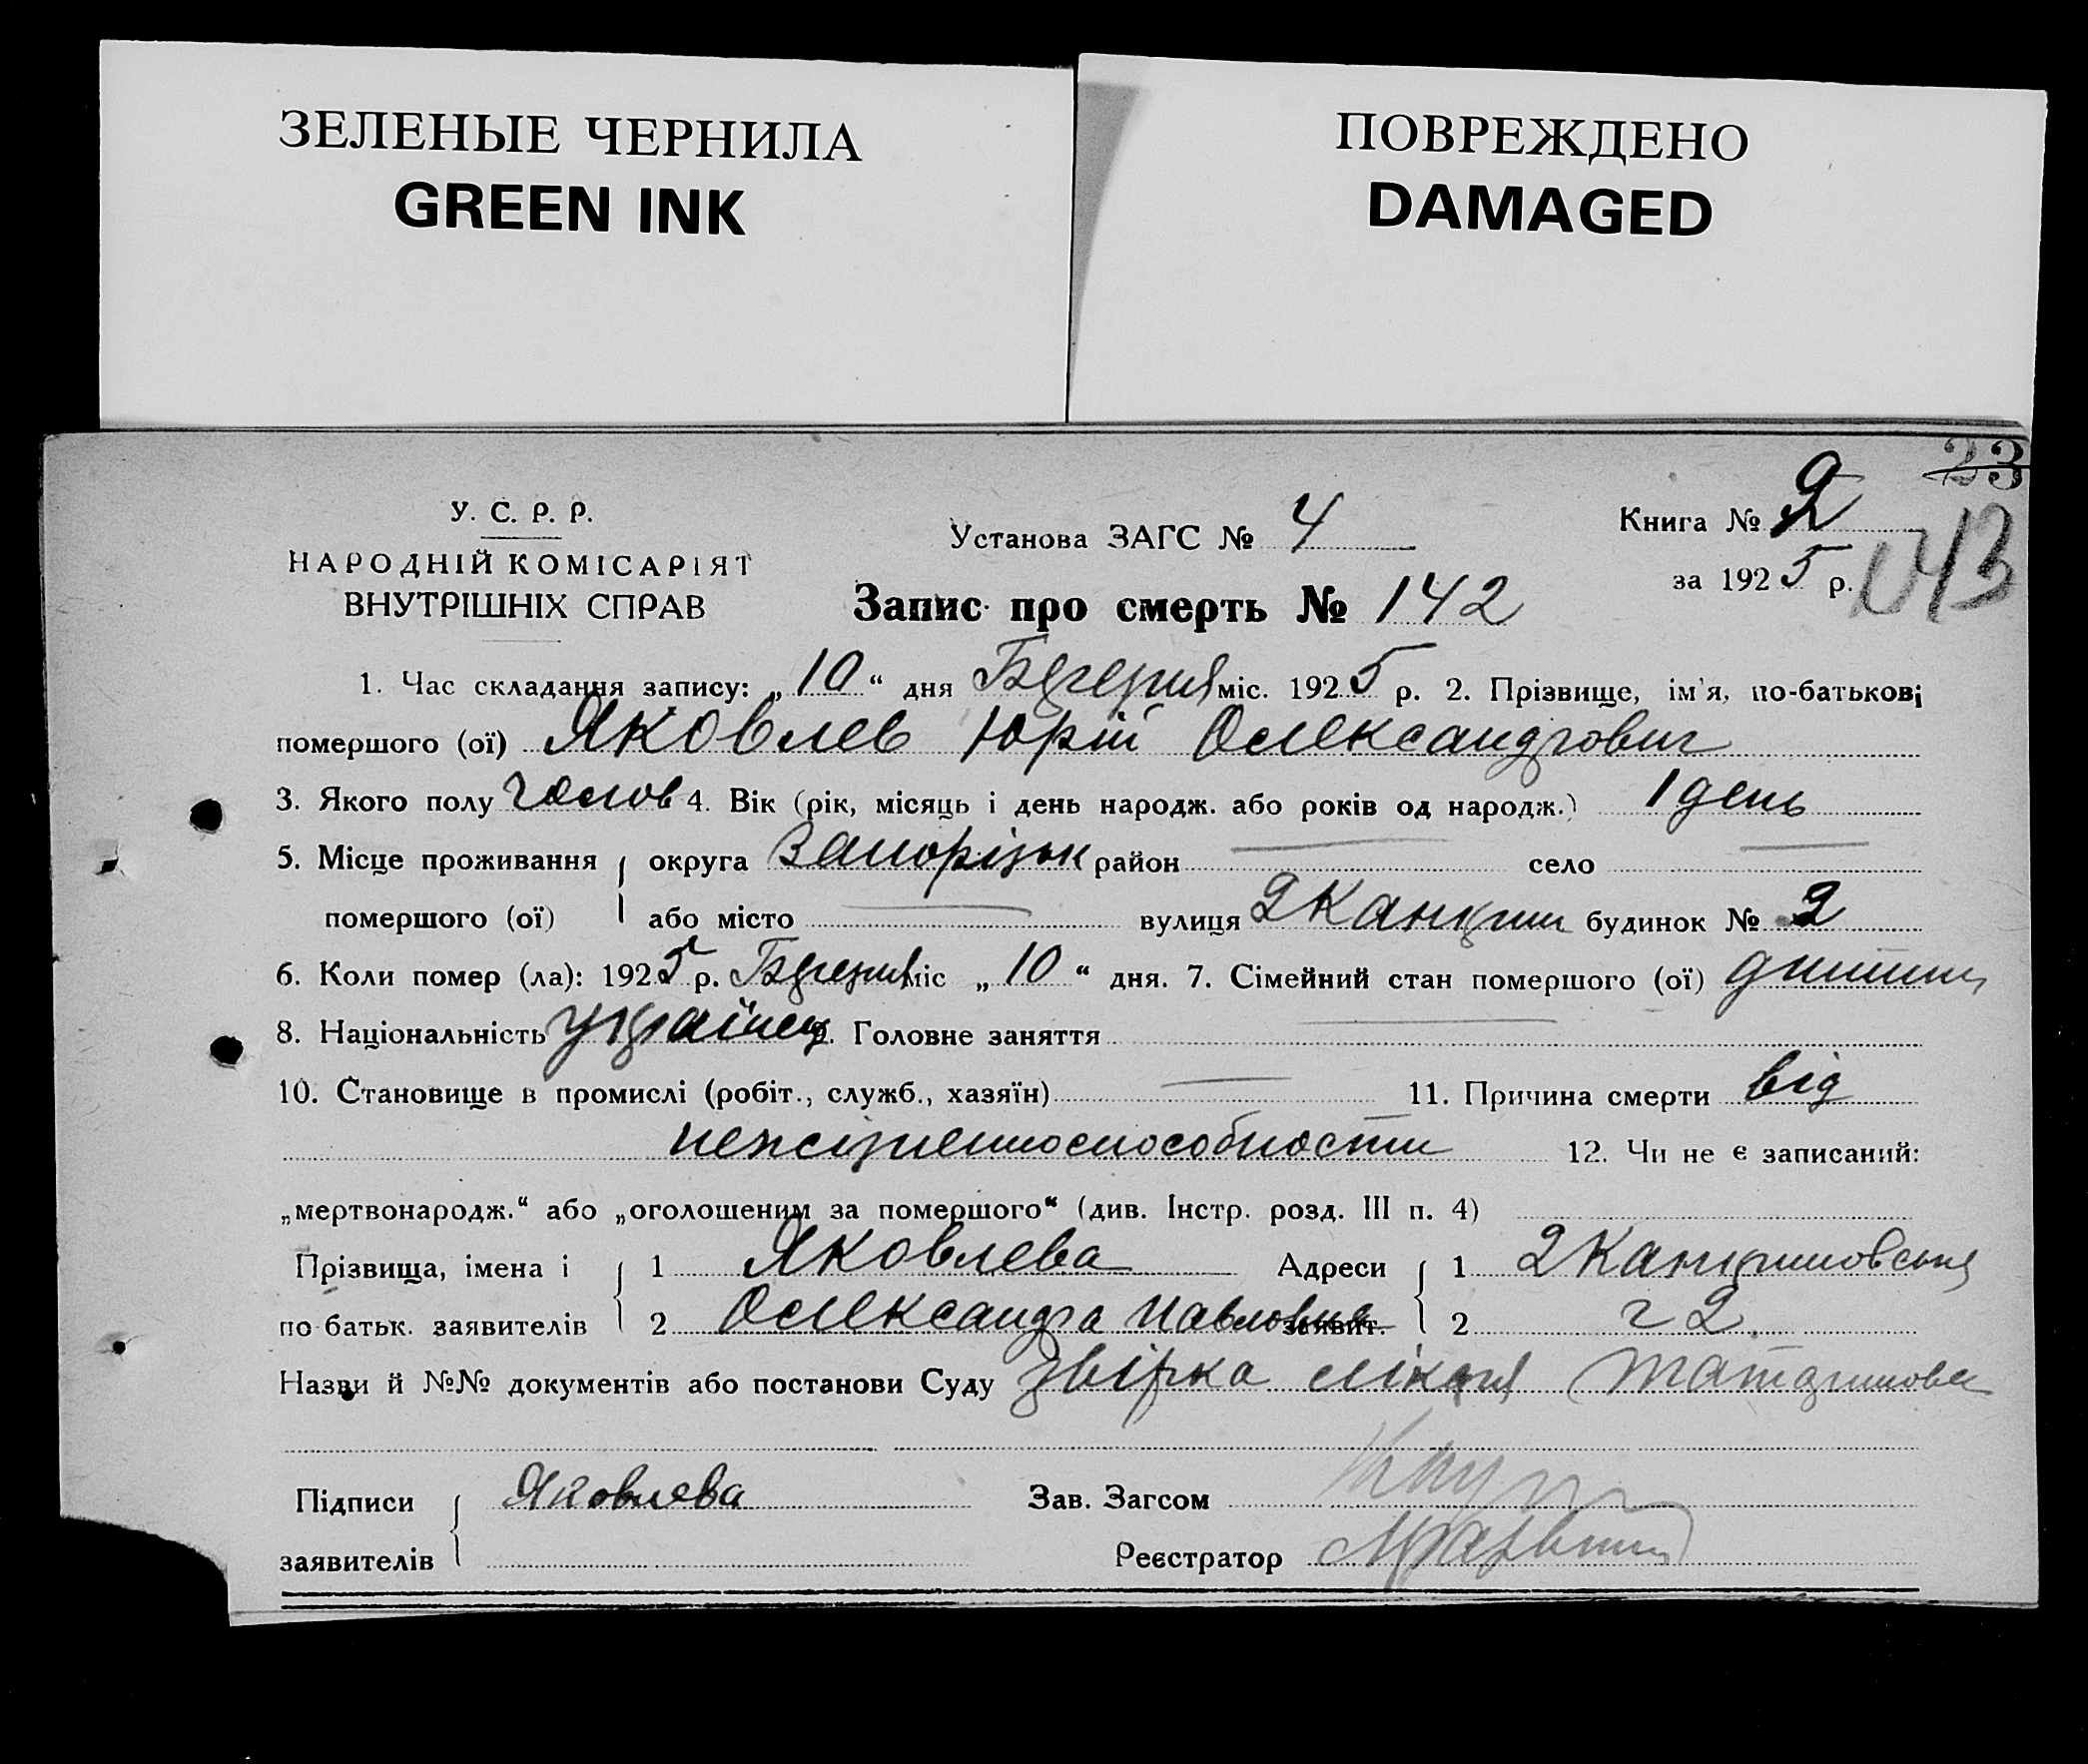 ЗЕЛЕНЫЕ ЧЕРНИЛА
GREEN INK
ПОВРЕЖДЕНО
DAMAGED
23
У. С. Р. Р.
НАРОДНІЙ КОМІСАРІЯТ
ВНУТРІШНІХ СПРАВ
Установа ЗАГС № 4
Книга № 2
за 1925 р.
143
Запис про смерть № 142
1. Час складання запису: „10“ дня Березня міс. 1925 р. 2. Прізвище, ім'я, по-батькові
помершого (ої) Яковлев Юрій Олександрович
3. Якого полу чолов 4. Вік (рік, місяць і день народж. або років од народж.) 1 день
5. Місце проживання { округа Запорізьк район — село —
помершого (ої) або місто — вулиця будинок № 2
6. Коли помер (ла): 1925 р. Березня міс „10“ дня. 7. Сімейний стан помершого (ої) дитина
8. Національність українец 9. Головне заняття —
10. Становище в промислі (робіт., служб., хазяїн) — 11. Причина смерти від
нежізненноспособности 12. Чи не є записаний:
„мертвонародж.“ або „оголошеним за помершого“ (див. Інстр. розд. III п. 4)
Прізвища, імена і { 1 Яковлева Адреси { 1
по батьк. заявителів 2 Олександра Павловна заявит. 2 ч 2.
Назви й №№ документів або постанови Суду лікаря
Підписи { Яковлева Зав. Загсом
заявителів Реєстратор